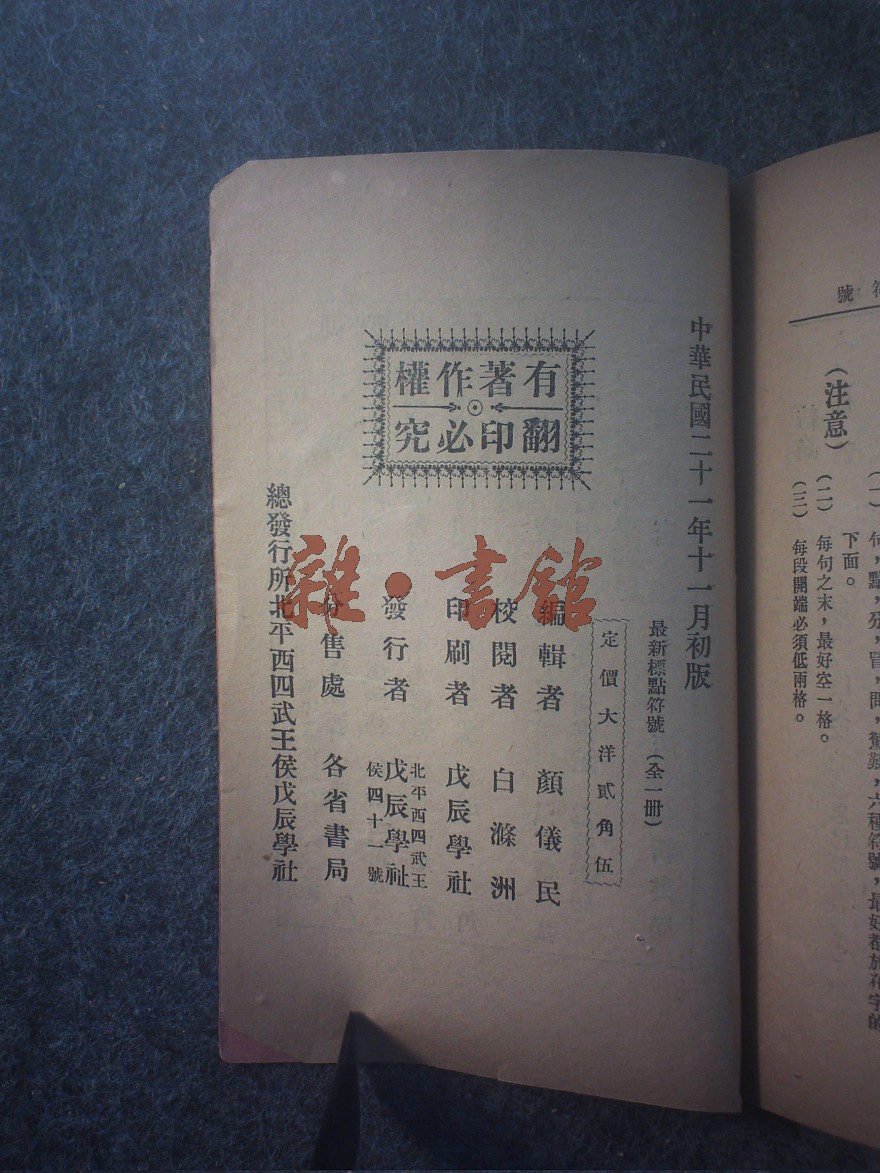 號
（注意）
句，點，分，冒，問，驚歎，六種符號，最好都放在字的
下面。
（二）每句之末，最好空一格。
（三）每段開端必須低兩格。
中華民國二十一年十一月初版
最新標點符號（全一冊）
定價大洋貳角伍
編輯者 顏儀民
校閱者 白滌洲
印刷者 戊辰學社
發行者 戊辰學社
北平西四武王
侯四十一號
分售處 各省書局
總發行所北平西四武王侯戊辰學社
有著作權
翻印必究
雜·書館